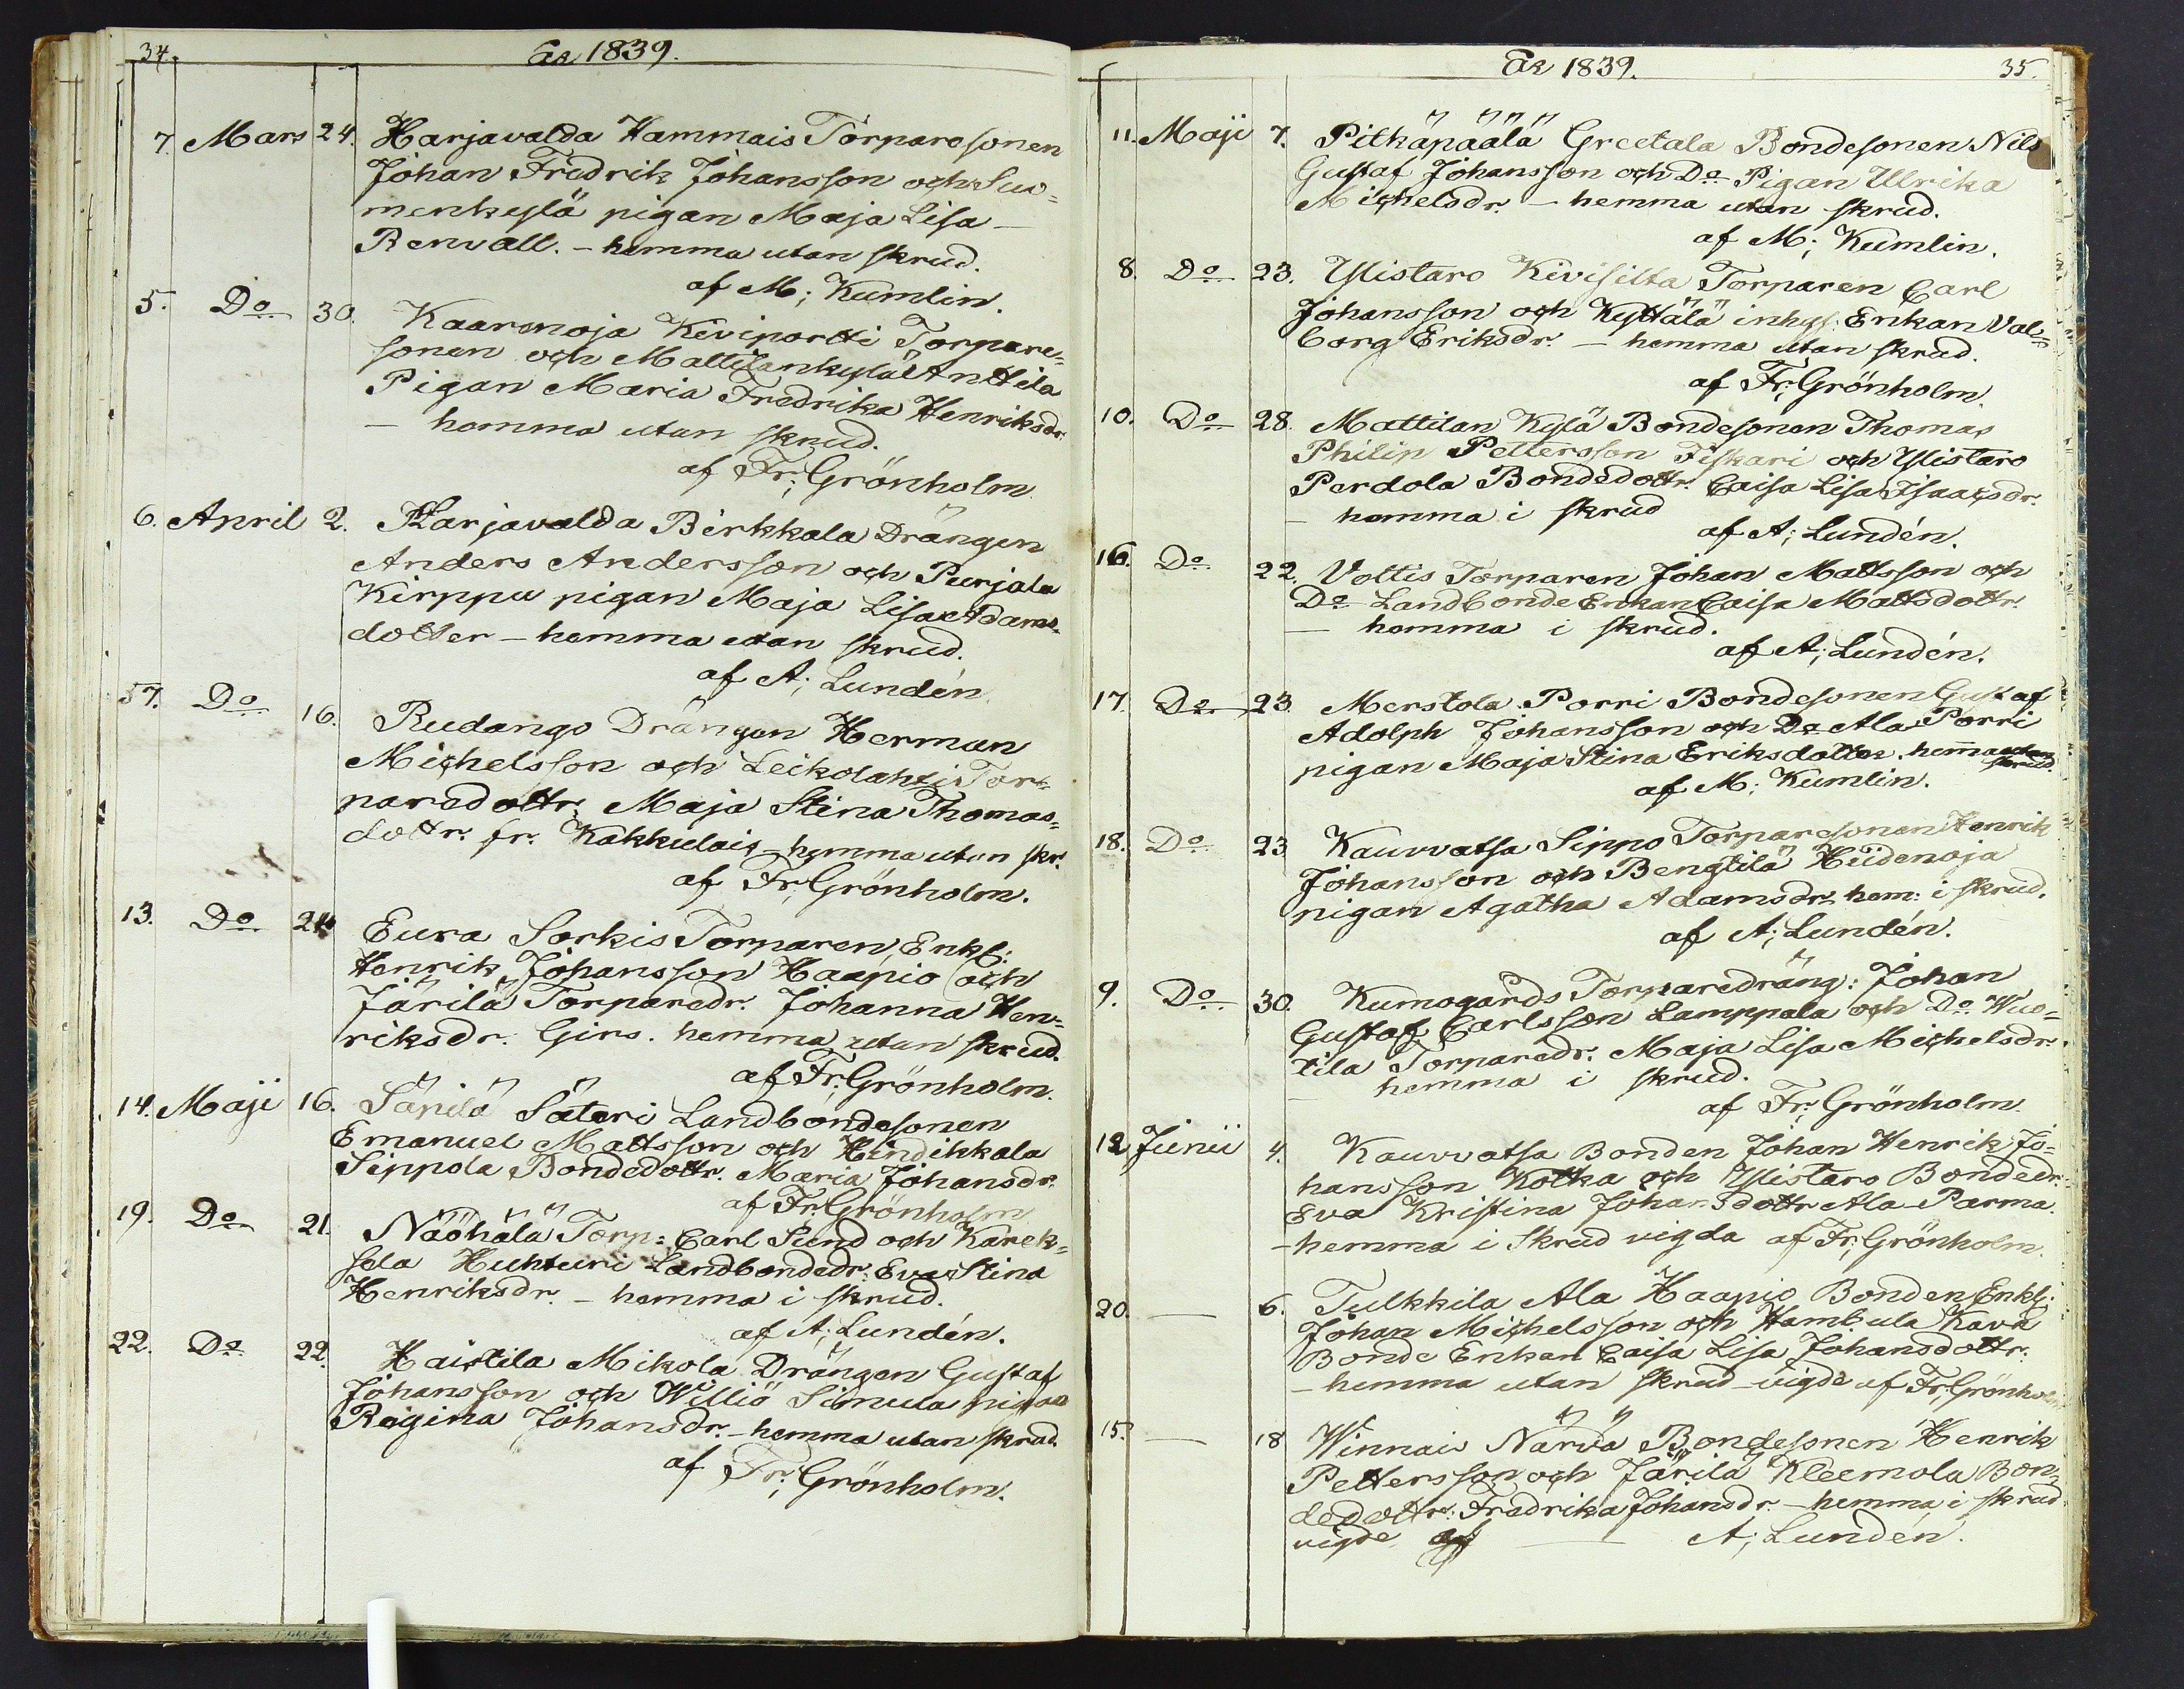 34.
År 1839.
7. Mars 24. Harjavalda Hammais Torparesonen
Johan Fredrik Johansson och Suo=
menkylä pigan Maja Lisa —
Renvall. – hemma utan skrud.
af M; Kumlin.
5. Do 30. Kaarenoja Kiviportti Torpare=
sonen och Mattilankylä Anttila
Pigan Maria Fredrika Henriksdr.
— hemma utan skrud.
af Fr; Grönholm
6. April 2. Harjavalda Birkkala Drängen
Anders Andersson och Purjala
Kirppu pigan Maja Lisa Adams=
dotter – hemma utan skrud.
af A; Lundén
57. Do 16. Rudango Drängen Herman
Michelsson och Leikolahti Tor=
paredottr. Maja Stina Thomas=
dottr. fr. Kakkulais – hemma utan skr.
af Fr; Grönholm.
13. Do 24. Eura Sorkis Torparen, Enkl:
Henrik Johansson Haapio och
Järilä Torparedr. Johanna Hen=
riksdr. Girs. hemma utan skrud.
af Fr; Grönholm.
14. Maji 16. Säpilä Säteri Landbondesonen
Emanuel Mattsson och Hindikkala
Sippola Bondedottr. Maria Johansdr.
af Fr; Grönholm
19. Do 21. Näöhälä Torp: Carl Sund och Karek=
sela Huhturi Landbondedr: Eva Stina
Henriksdr. – hemma i skrud.
af A; Lundén.
22. Do 22. Haistila Mikola Drängen Gustaf
Johansson och Williö Simula pigan
Regina Johansdr. – hemma utan skrud.
af Fr; Grönholm.
År 1839.
35.
11. Maji 7. Pitkäpäälä Greetala Bondesonen Nils
Gustaf Johansson och Do Pigan Ulrika
Michelsdr. – hemma utan skrud.
af M; Kumlin.
8. Do 23. Ylistaro Kivisilta Torparen Carl
Johansson och Kyttälä inhys: Enkan Val=
borg Eriksdr. — hemma utan skrud.
af Fr; Grönholm.
10. Do 28. Mattilan Kylä Bondesonen Thomas
Philip Pettersson Fiskari och Ylistaro
Perdola Bondedottr. Caisa Lisa Isaacsdr.
— hemma i skrud
af A; Lundén.
16. Do 22. Voltis Torparen Johan Mattsson och
Do Landbonde Enkan Caisa Mattsdottr.
— hemma i skrud.
af A; Lundén.
17. Do 23. Merstola Porri Bondesonen Gustaf
Adolph Johansson och Do Ala Porri
pigan Maja Stina Eriksdotter. hemma utan
skrud.
af M; Kumlin.
18. Do 23 Kauvvatsa Sippo Torparesonen Henrik
Johansson och Bengtilä Hiidenoja
pigan Agatha Adamsdr. hem: i skrud.
af A; Lundén.
9. Do 30. Kumogårds Torparedräng: Johan
Gustaf Carlsson Lamppala och Do Wuo=
tila Torparedr: Maja Lisa Michelsdr.
— hemma i skrud.
af Fr; Grönholm
12 Junii 4. Kauvvatsa Bonden Johan Henrik Jo=
hansson Kotka och Ylistaro Bondedr.
Eva Kristina Johansdottr Ala Parma.
– hemma i skrud vigda af Fr; Grönholm.
20. — 6. Tulkkila Ala Haapio Bonden Enkl:
Johan Michelsson och Hambula Karra
Bonde Enkan Caisa Lisa Johansdottr.
– hemma utan skrud – vigde af Fr; Grönholm
15. — 18 Winnais Närvä Bondesonen Henrik
Pettersson och Järilä Kleemola Bon=
dedottr. Fredrika Johansdr. – hemma i skrud
vigde af — A; Lundén.